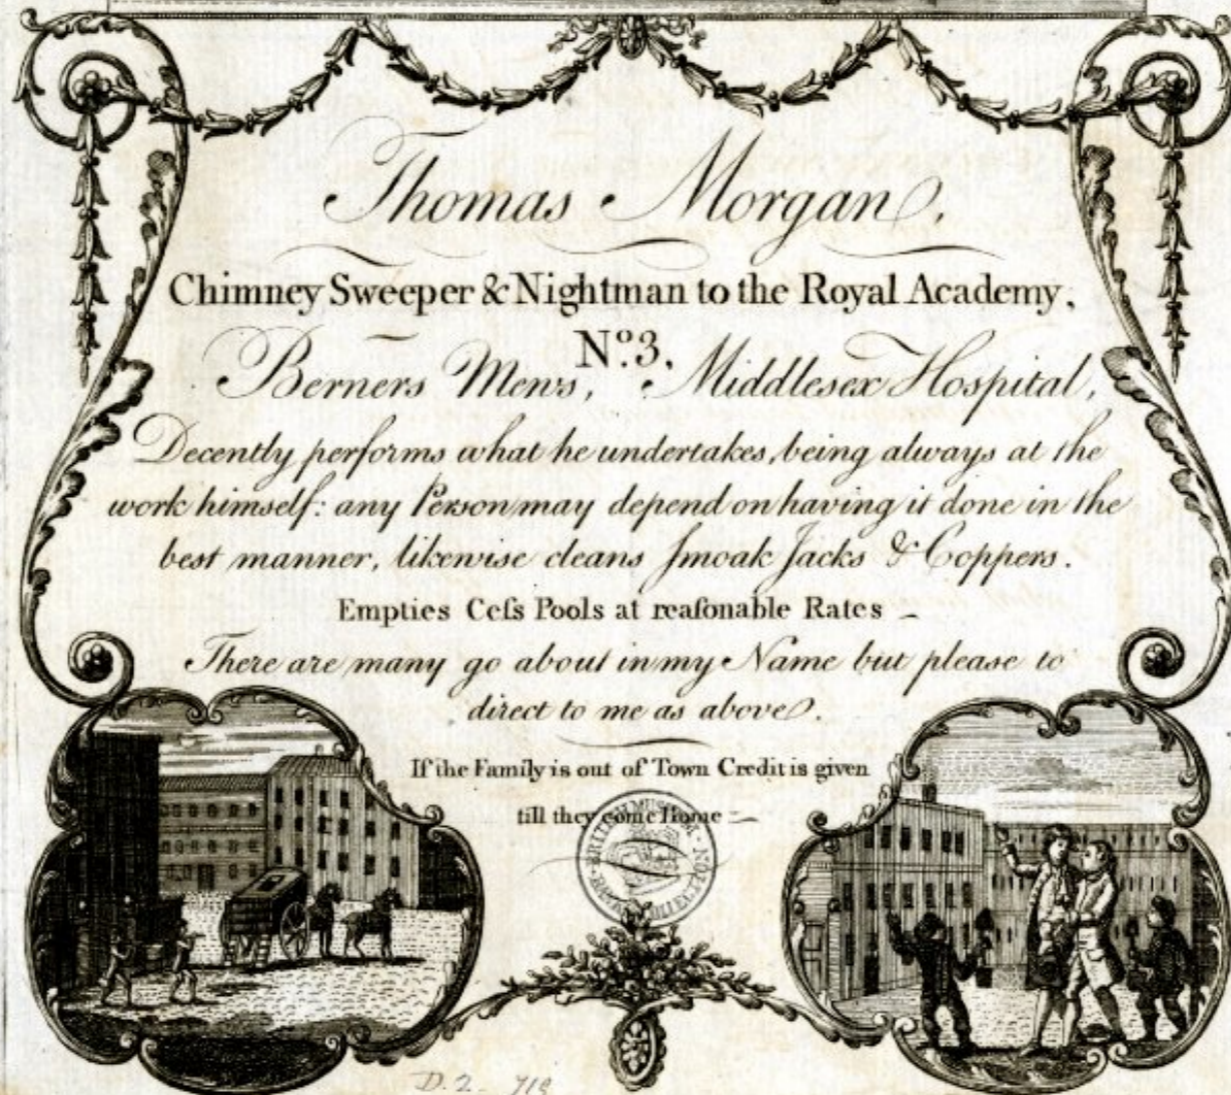 Thomas Morgan,
Chimney Sweeper & Nightman to the Royal Academy,
No. 3,
Berners Mews, Middlesex Hospital,
Decently performs what he undertakes, being always at the
work himself: any Person may depend on having it done in the
best manner, likewise cleans ſmoak Jacks & Coppers.
Empties Ceſs Pools at reaſonable Rates –
There are many go about in my Name but please to
direct to me as above.
If the Family is out of Town Credit is given
till they come Home –
BRITISH MUSEUM
D.2-